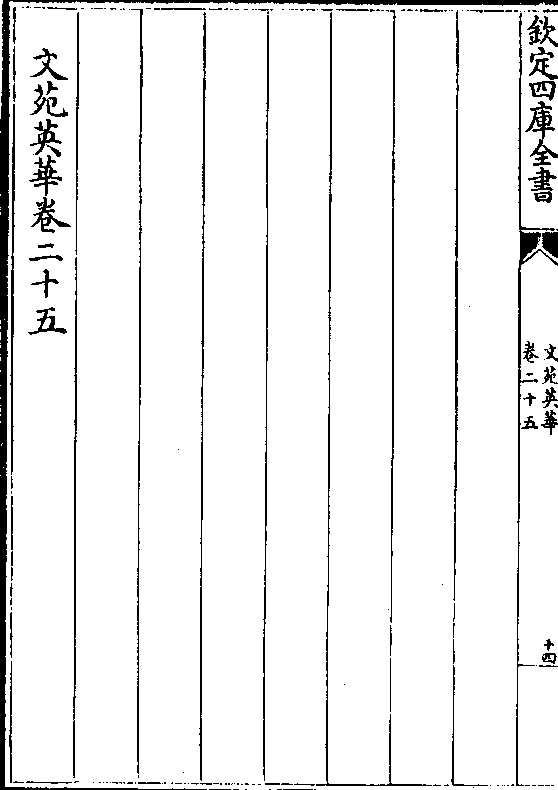 欽定四庫全書
文苑英華
卷二十五
十四
文苑英華卷二十五